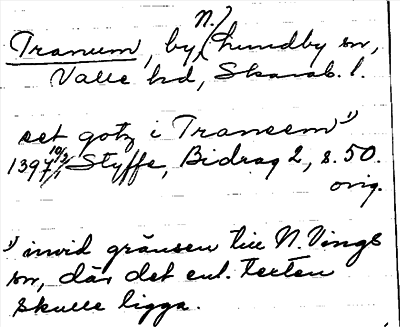 Tranum, by, (N.) Lundby sn,
Valle hd, Skarab. l.
set gotz i Transem 1)
1397 10/3 /1 Styffe, Bidrag 2, s. 50.
orig.
1) invid gränsen till N. Vings
sn, där det enl. texten
skulle ligga.